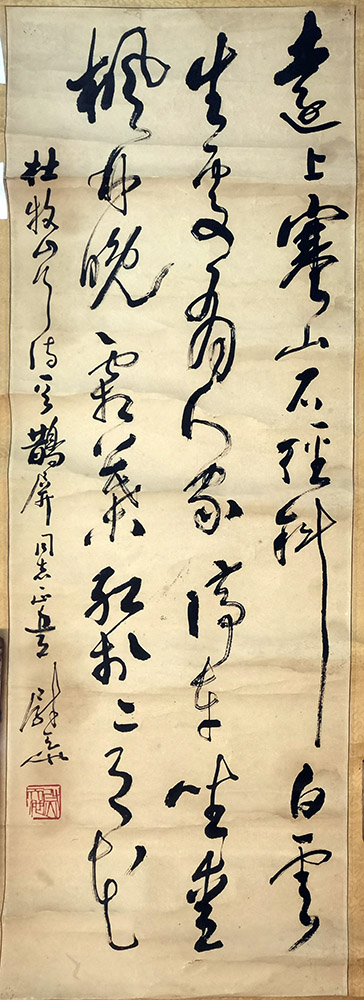 遠上寒山石徑斜白雲
生處有人家停車坐愛
楓林晚霜葉紅於二月花
杜牧山行詩奉鵲屏同志正之